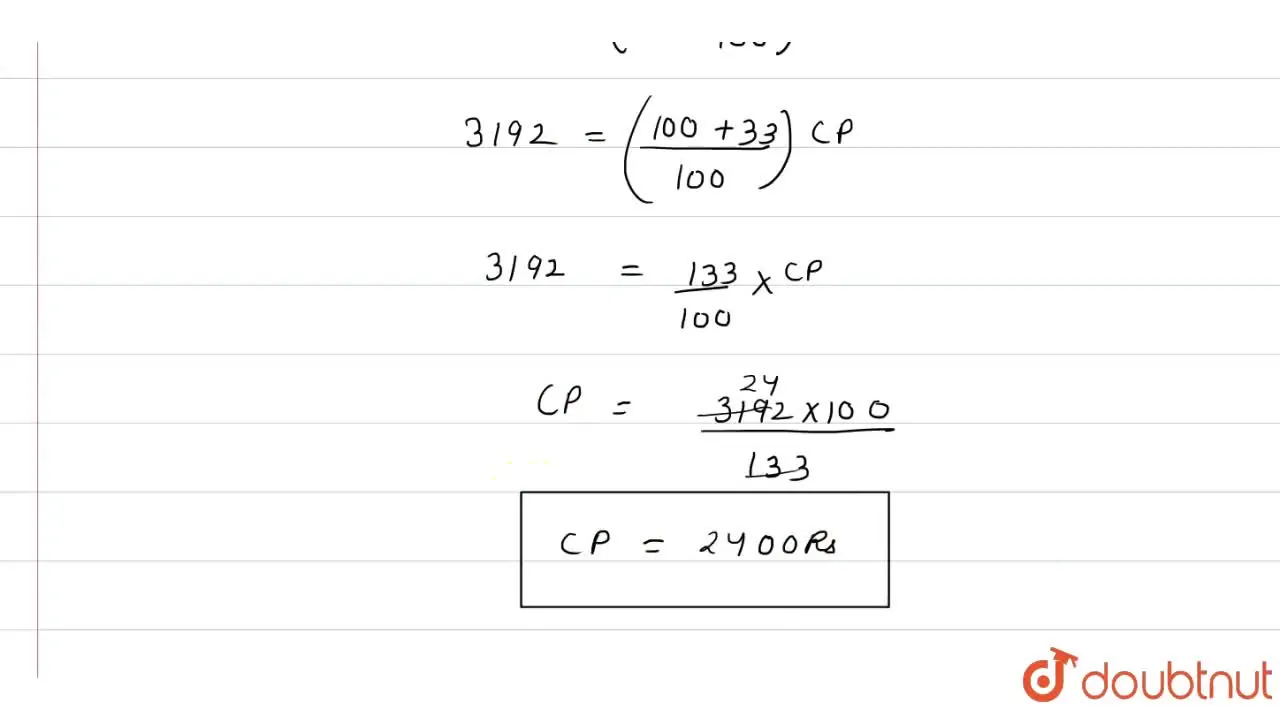 3192 = (100 + 33 / 100) CP
3192 = 133 / 100 X CP
24
CP = 3192 X 100 / 133
CP = 2400 Rs
doubtnut